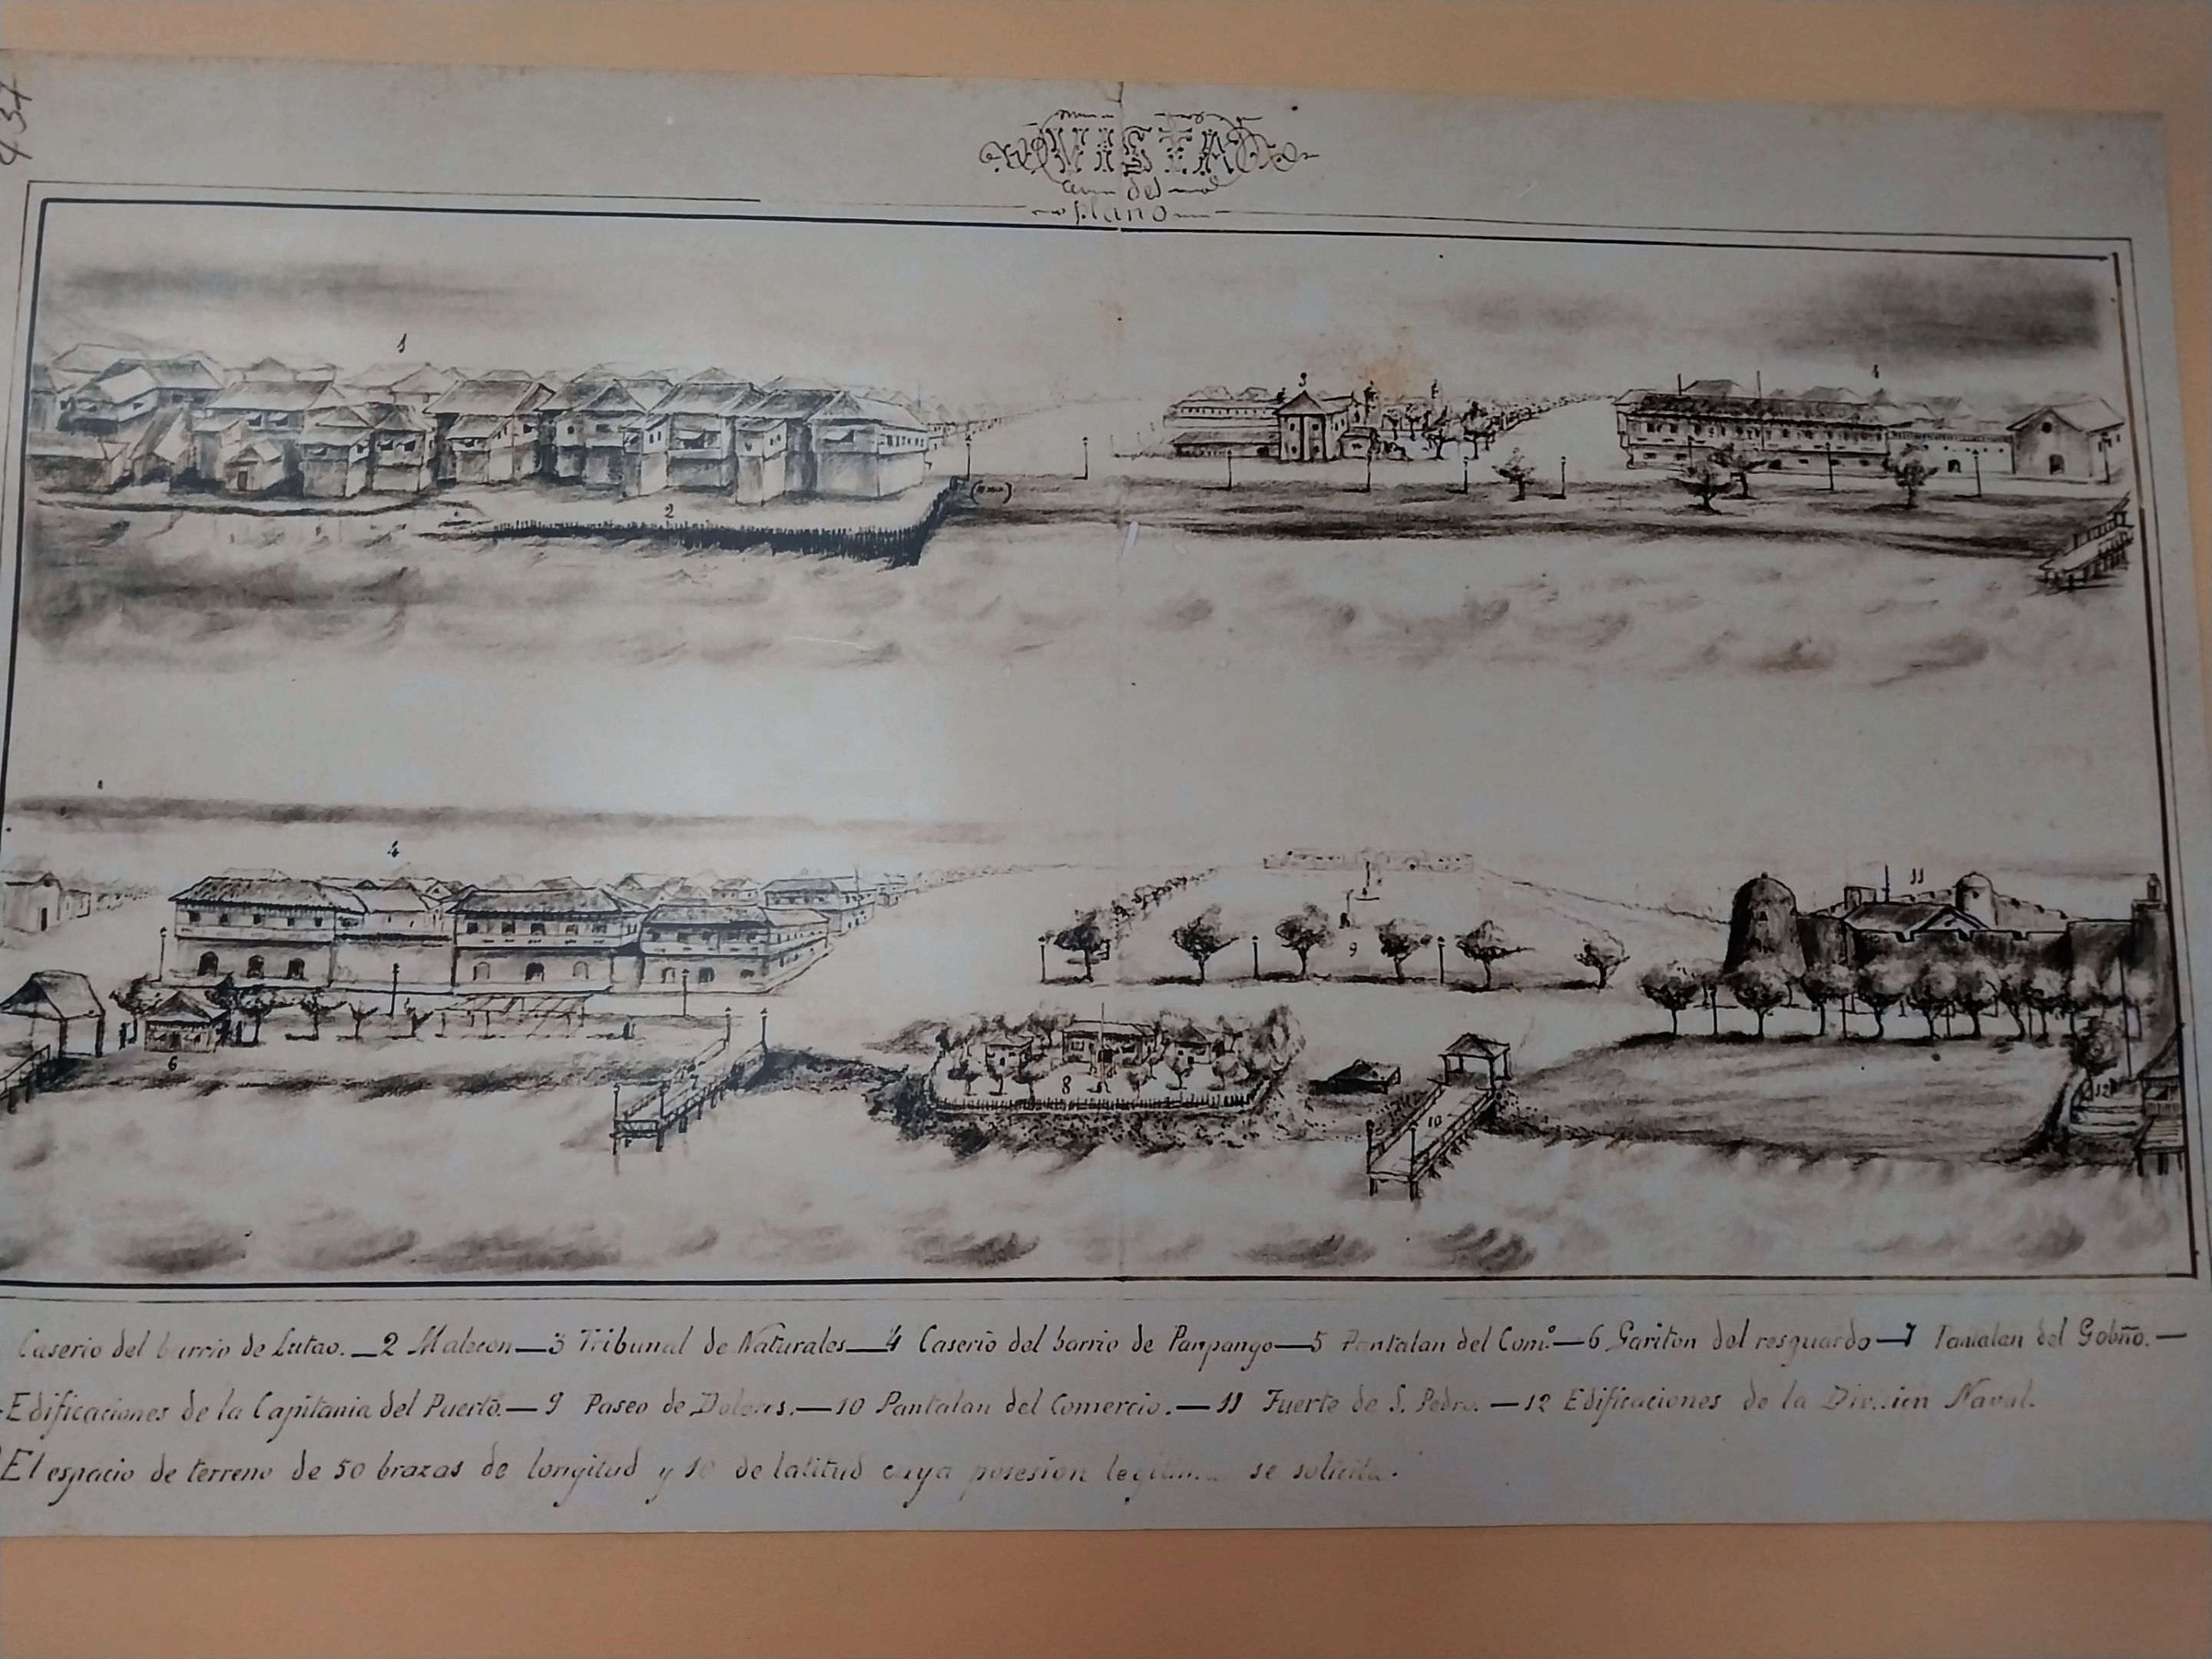 437
VISTA
del
plano
1
3
4
2
4
11
9
6
7
8
10
12
Caserio del barrio de Lutao. _ 2 Malecon _ 3 Tribunal de Naturales _ 4 Caserio del barrio de Panpango — 5 Pantalan del Com.º — 6 Gariton del resguardo — 7 Pantalan del Gobño. —
Edificaciones de la Capitania del Puerto. — 9 Paseo de Dolores. — 10 Pantalan del Comercio. — 11 Fuerte de S. Pedro. — 12 Edificaciones de la Division Naval.
El espacio de terreno de 50 brazas de longitud y 10 de latitud cuya posesion legitima se solicita.